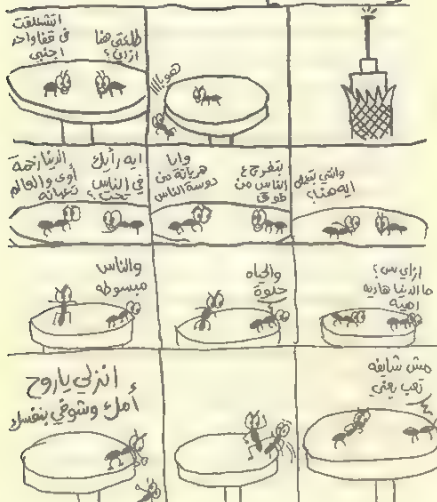 هوبااا
طلعتي هنا
ازاي؟
اتشعلقت
في قفا واحد
اجنبي
وانتي بتعملي
ايه هنا؟
بتفرج ع
الناس من
فوق
وانا
هربانة من
دوسة الناس
ايه رأيك
في الناس
تحت؟
الدنيا زحمة
أوي والعالم
تعبانه
ازاي بس؟
ما الدنيا هاديه
اهيه
والحياه
حلوة
والناس
مبسوطه
مش شايفه
تعب يعني
انزلي ياروح
أمك وشوفي بنفسك